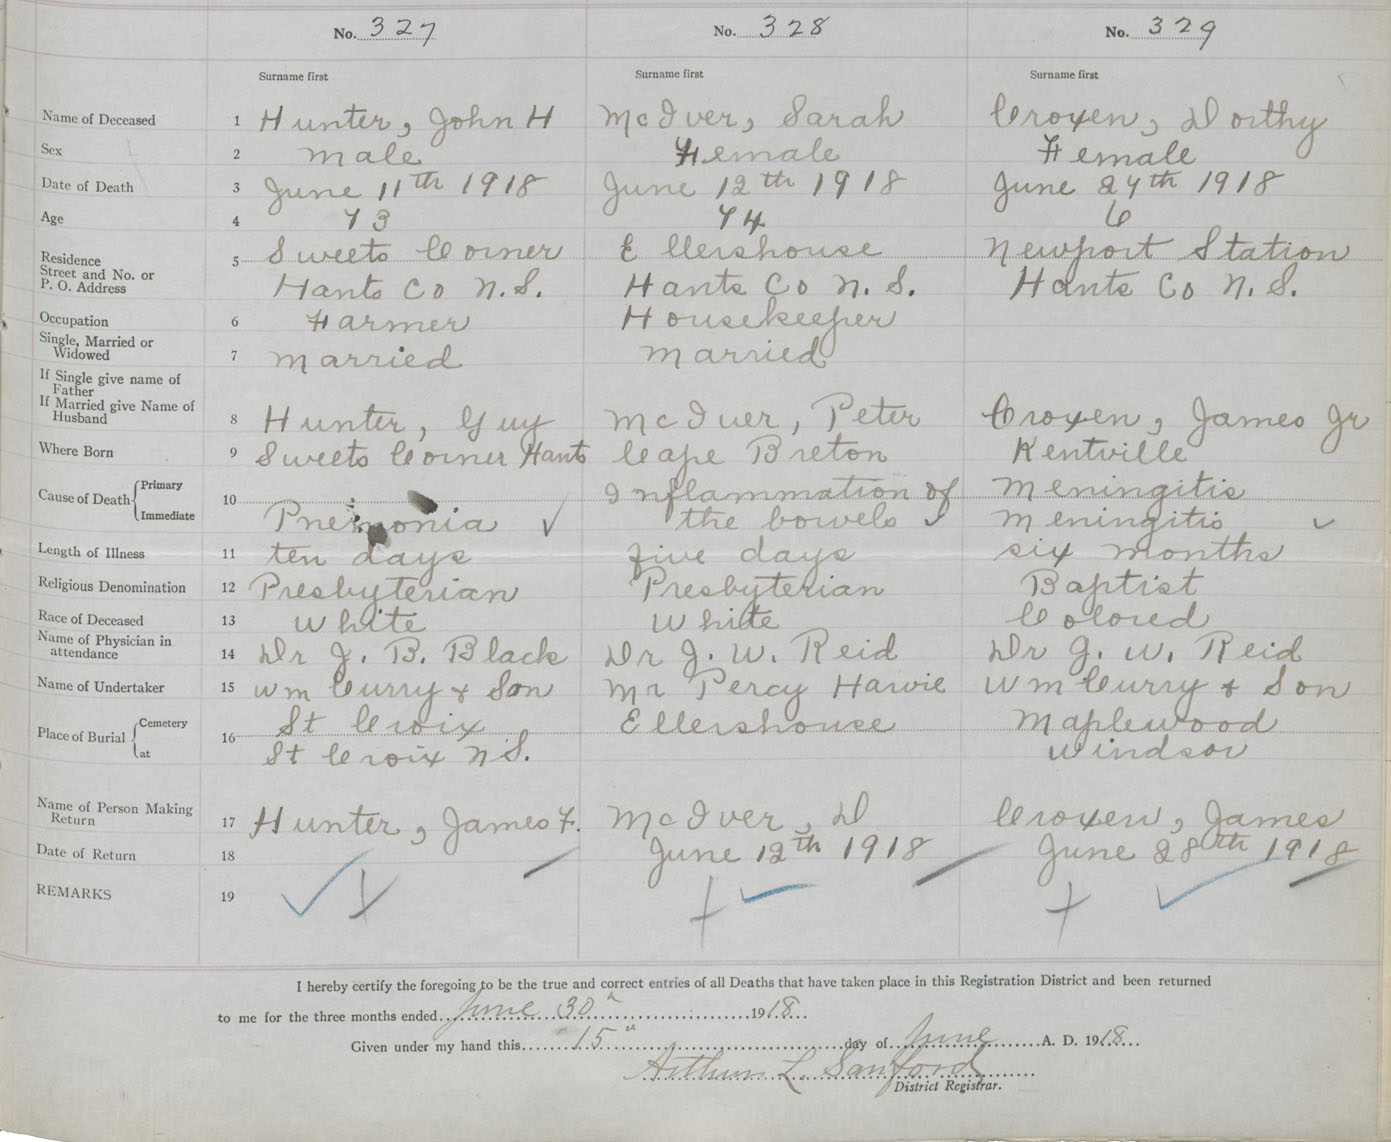 No. 327 No. 328 No. 329
Surname first Surname first Surname first
Name of Deceased 1 Hunter, John H McIver, Sarah Croxen, Dorthy
Sex 2 male Female Female
Date of Death 3 June 11th 1918 June 12th 1918 June 27th 1918
Age 4 73 74 6
Residence
Street and No. or 5 Sweets Corner Ellershouse Newport Station
P. O. Address Hants Co N.S. Hants Co N.S. Hants Co N.S.
Occupation 6 Farmer Housekeeper
Single, Married or
Widowed 7 married married
If Single give name of
Father
If Married give Name of
Husband 8 Hunter, Guy McIver, Peter Croxen, James Jr
Where Born 9 Sweets Corner Hants Cape Breton Kentville
Cause of Death Primary 10 Inflammation of Meningitis
Immediate Pnemonia the bowels Meningitis
Length of Illness 11 ten days five days six months
Religious Denomination 12 Presbyterian Presbyterian Baptist
Race of Deceased 13 White White Colored
Name of Physician in
attendance 14 Dr J. B. Black Dr J. W. Reid Dr J. W. Reid
Name of Undertaker 15 Wm Curry & Son Mr Percy Harvie Wm Curry & Son
Place of Burial Cemetery 16 St Croix Ellershouse Maplewood
at St Croix N.S. Windsor
Name of Person Making
Return 17 Hunter, James F. McIver, D Croxen, James
Date of Return 18 June 12th 1918 June 28th 1918
REMARKS 19
I hereby certify the foregoing to be the true and correct entries of all Deaths that have taken place in this Registration District and been returned
to me for the three months ended June 30" 1918
Given under my hand this 15" day of June A. D. 1918
Arthur L. Sanford
District Registrar.